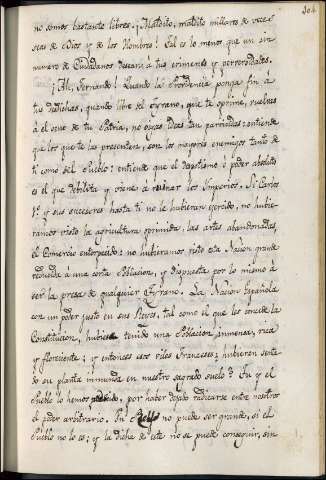 304
no somos bastante libres. ¡Maldito, maldito millares de veces
seas de Dios y de los Hombres! Tal es lo menos que un sin
numero de Ciudadanos deseará á tus crimenes y perversidades.
¡Ah, Fernando! Quando la Providencia ponga fin á
tus desdichas, quando libre del tyrano, que te oprime, vuelvas
á el seno de tu Patria, no oygas ideas tan parricidas: entiende
que los que te las presenten, son los mayores enemigos tanto de
ti como del Pueblo: entiende que el despotismo ó poder absoluto
es el que debilita y viene á arruinar los Imperios. Si Carlos
1º. y sus succesores hasta ti no le hubieran exercido, no hubie-
ramos visto la agricultura oprimida, las artes abandonadas,
el Comercio entorpecido: no hubieramos visto esta Nacion grande
reducida á una corta Poblacion, y dispuesta por lo mismo á
ser la presa de qualquier Tyrano. La Nacion Española
con un poder justo en sus Reyes, tal como el que les concede la
Constitucion, hubiera tenido una Poblacion inmensa, rica
y floreciente; y entonces esos viles Franceses; hubieran senta
do su planta inmunda en nuestro sagrado suelo? Tu y el
Pueblo lo hemos perdido, por haber dejado radicarse entre nosotros
el poder arbitrario. Tu no puede ser grande, si el
Pueblo no lo es; y la dicha de este no se puede conseguir, sin